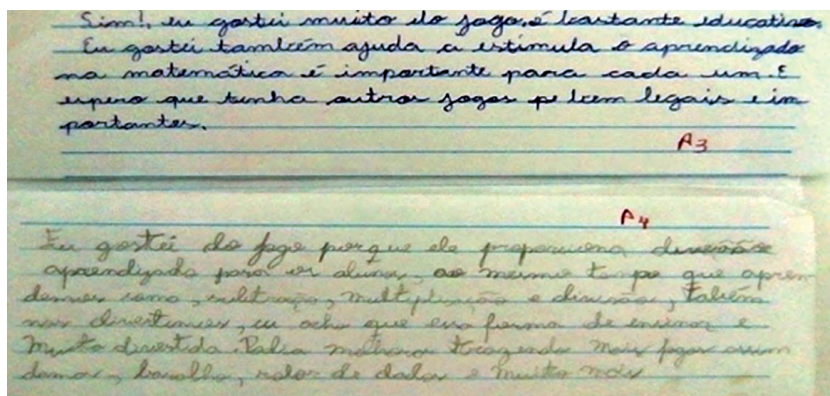 Sim!, eu gostei muito do jogo, é bastante educativo.
Eu gostei também ajuda a estimula o aprendizado
na matemática é importante para cada um. E
espero que tenha outros jogos bem legais e im
portantes.
A3
A4
Eu gostei do jogo porque ele proporciona diversão e
aprendizado para os alunos, ao mesmo tempo que apren
demos soma, subtração, multiplicação e divisão, também
nos divertimos, eu acho que essa forma de ensinar e
Muito divertida. Podia melhora trazendo mais jogos assim
damas, baralho, de dados e muito mais